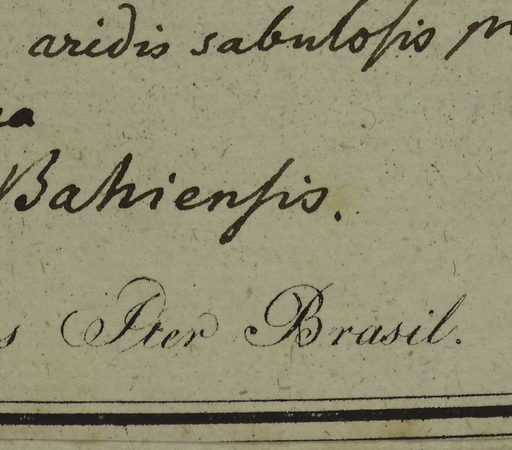 aridis sabulosis
Bahiensis.
s Iter Brasil.